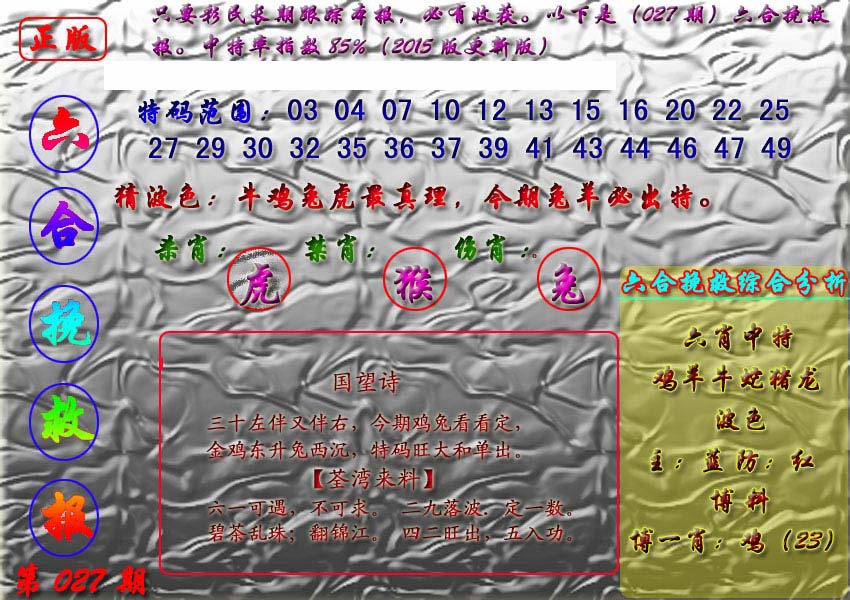 正版
只要彩民长期跟踪本报，必有收获。以下是（027期）六合挽救
报。中特率指数85%（2015版更新版）
六合挽救报
第027期
特码范围：03 04 07 10 12 13 15 16 20 22 25
27 29 30 32 35 36 37 39 41 43 44 46 47 49
猜波色：牛鸡兔虎最真理，今期兔羊必出特。
杀肖：虎 禁肖：猴 伤肖：兔
国望诗
三十左伴又伴右，今期鸡兔看看定，
金鸡东升兔两沉，特码旺大和单出。
【荃湾来料】
六一可遇，不可求。 二九落波．定一数。
碧茶乱珠；翻锦江。 四二旺出，五入功。
六合挽救综合分析
六肖中特
鸡羊牛蛇猪龙
波色
主：蓝防：红
博料
博一肖：鸡（23）